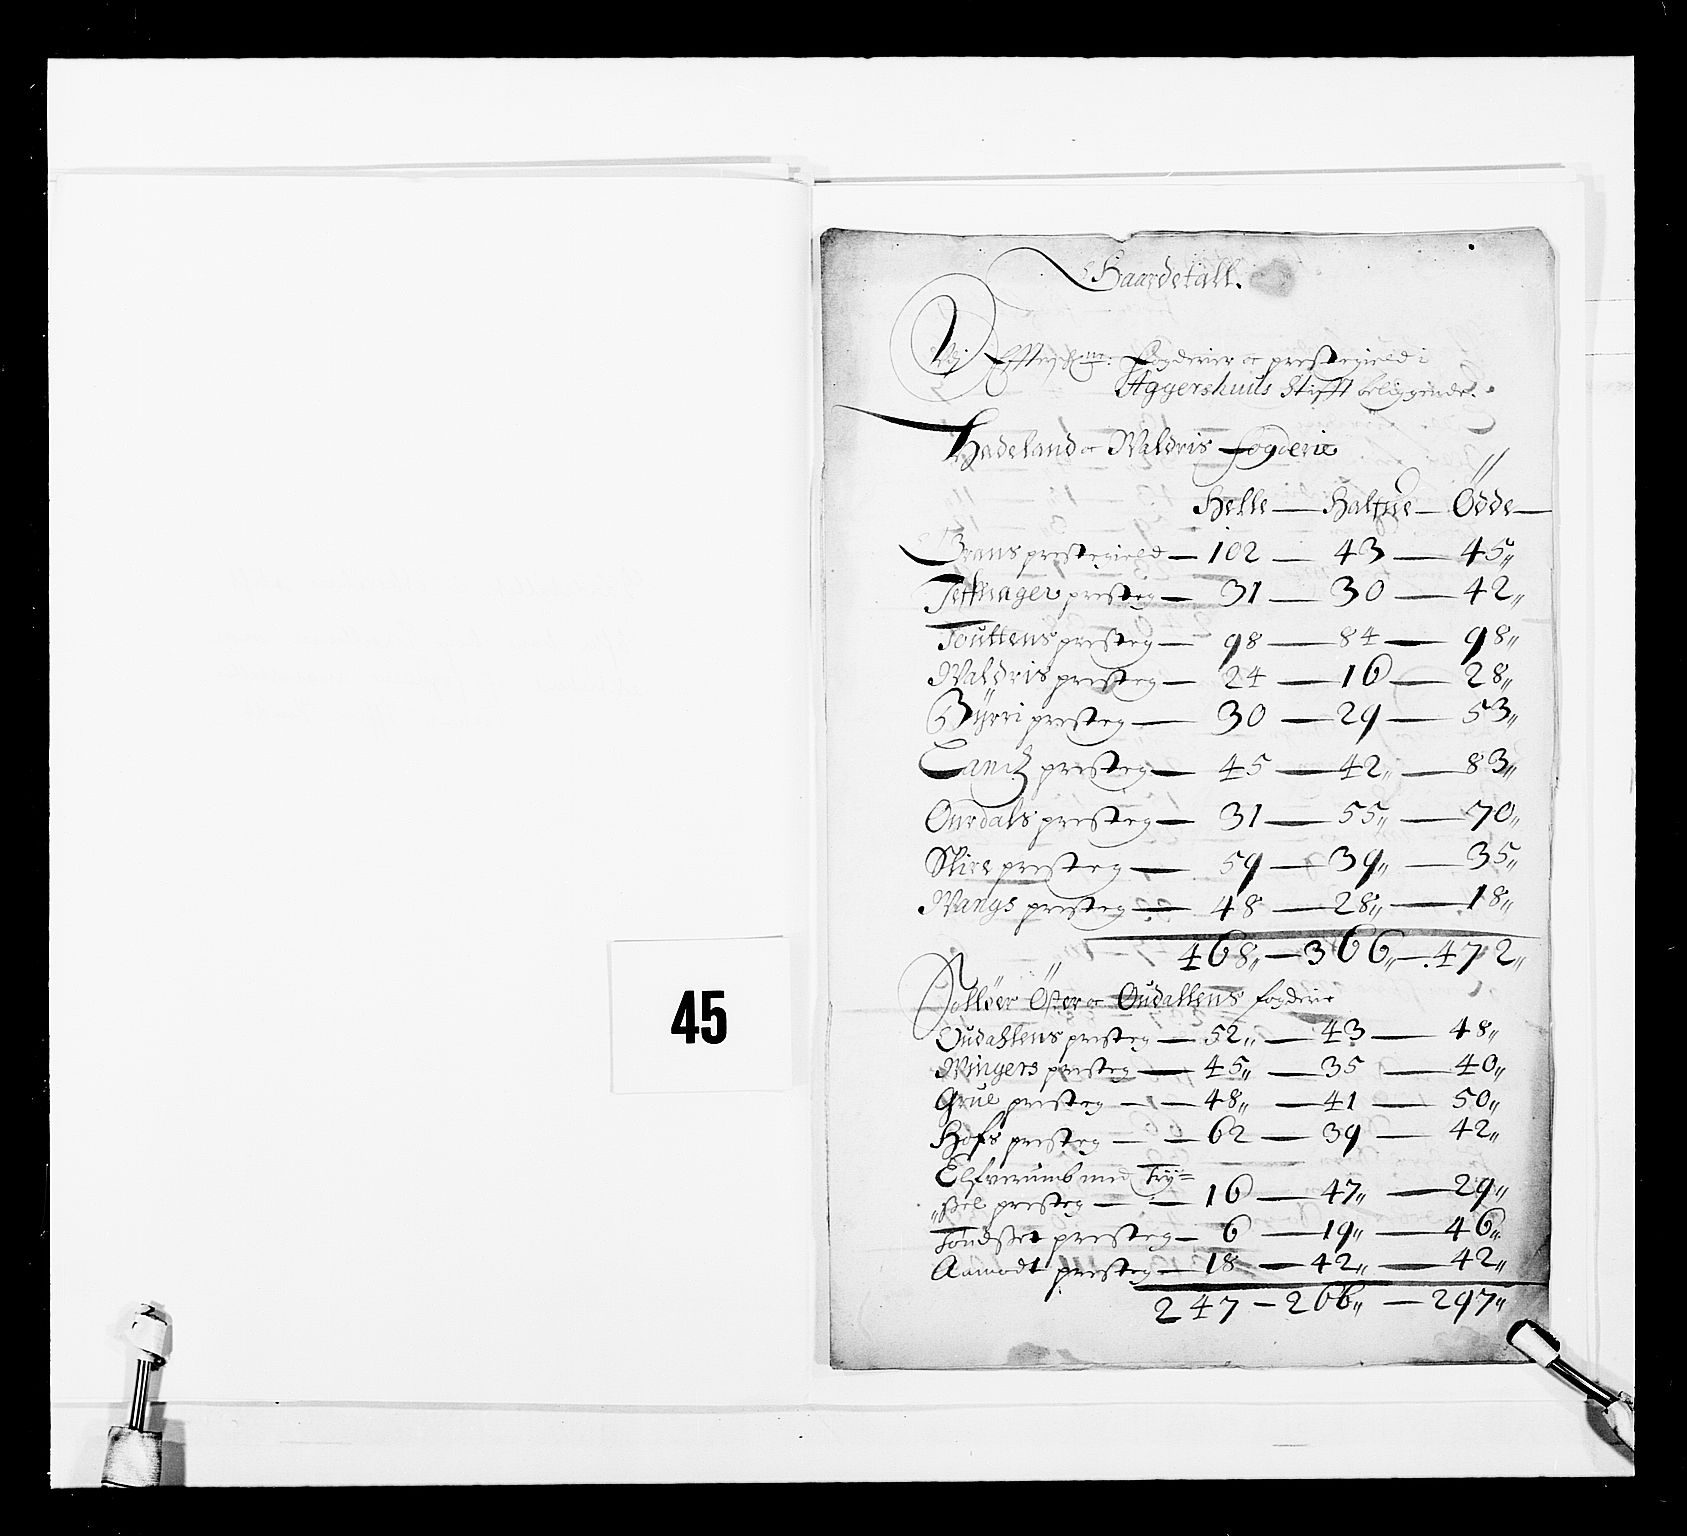 Gaardetall.
Vdj Effterschr: Fogderier oc prestegield i
Aggershuus Stifft beliggende.
Hadeland oc Valdris fogderie
Helle — Halfue — Ödde —
Grans prestegield — 102 — 43 — 45"
Jeffnager presteg — 31 — 30 — 42"
Touttens presteg — 98 — 84 — 98"
Valdris presteg — 24 — 16 — 28"
Byrri presteg — 30 — 29 — 53"
Landz presteg — 45 — 42" — 83"
Ourdals presteg — 31 — 55" — 70"
Slire presteg — 59 — 39" — 35"
Wangs presteg — 48 — 28" — 18"
468" — 366" — 472"
Solløer Öster oc Oudallens fogderie
Oudallens presteg — 52" — 43 — 48"
Wingers presteg — 45" — 35 — 40"
Grue presteg — 48" — 41 — 50"
Hofs presteg — 62 — 39 — 42"
Elfverumb med Try=
"ssel presteg — 16 — 47" — 29"
Tøndset presteg — 6 — 19" — 46"
Aamodt presteg — 18 — 42" — 42"
247 — 266" — 297"
45